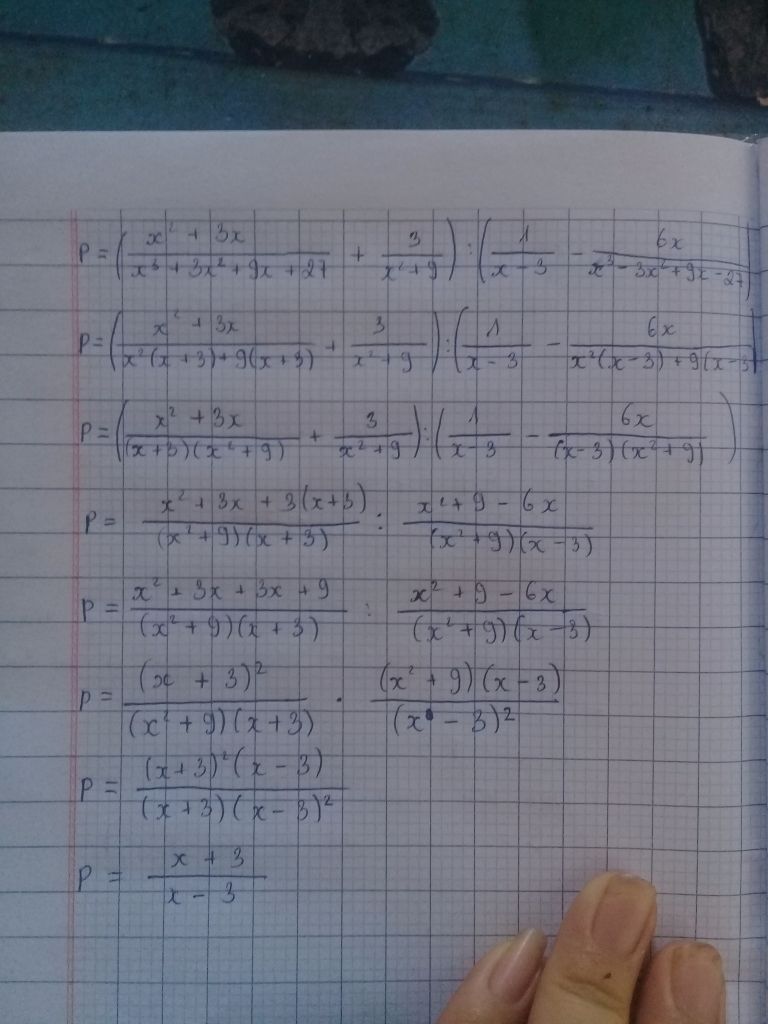 P = ( (x² + 3x)/(x³ + 3x² + 9x + 27) + 3/(x² + 9) ) : ( 1/(x - 3) - 6x/(x³ - 3x² + 9x - 27) )
P = ( (x² + 3x)/(x²(x + 3) + 9(x + 3)) + 3/(x² + 9) ) : ( 1/(x - 3) - 6x/(x²(x - 3) + 9(x - 3
P = ( (x² + 3x)/((x + 3)(x² + 9)) + 3/(x² + 9) ) : ( 1/(x - 3) - 6x/((x - 3)(x² + 9)) )
P = (x² + 3x + 3(x + 3))/((x² + 9)(x + 3)) : (x² + 9 - 6x)/((x² + 9)(x - 3))
P = (x² + 3x + 3x + 9)/((x² + 9)(x + 3)) : (x² + 9 - 6x)/((x² + 9)(x - 3))
P = (x + 3)²/((x² + 9)(x + 3)) . ((x² + 9)(x - 3))/(x - 3)²
P = ((x + 3)²(x - 3))/((x + 3)(x - 3)²)
P = (x + 3)/(x - 3)